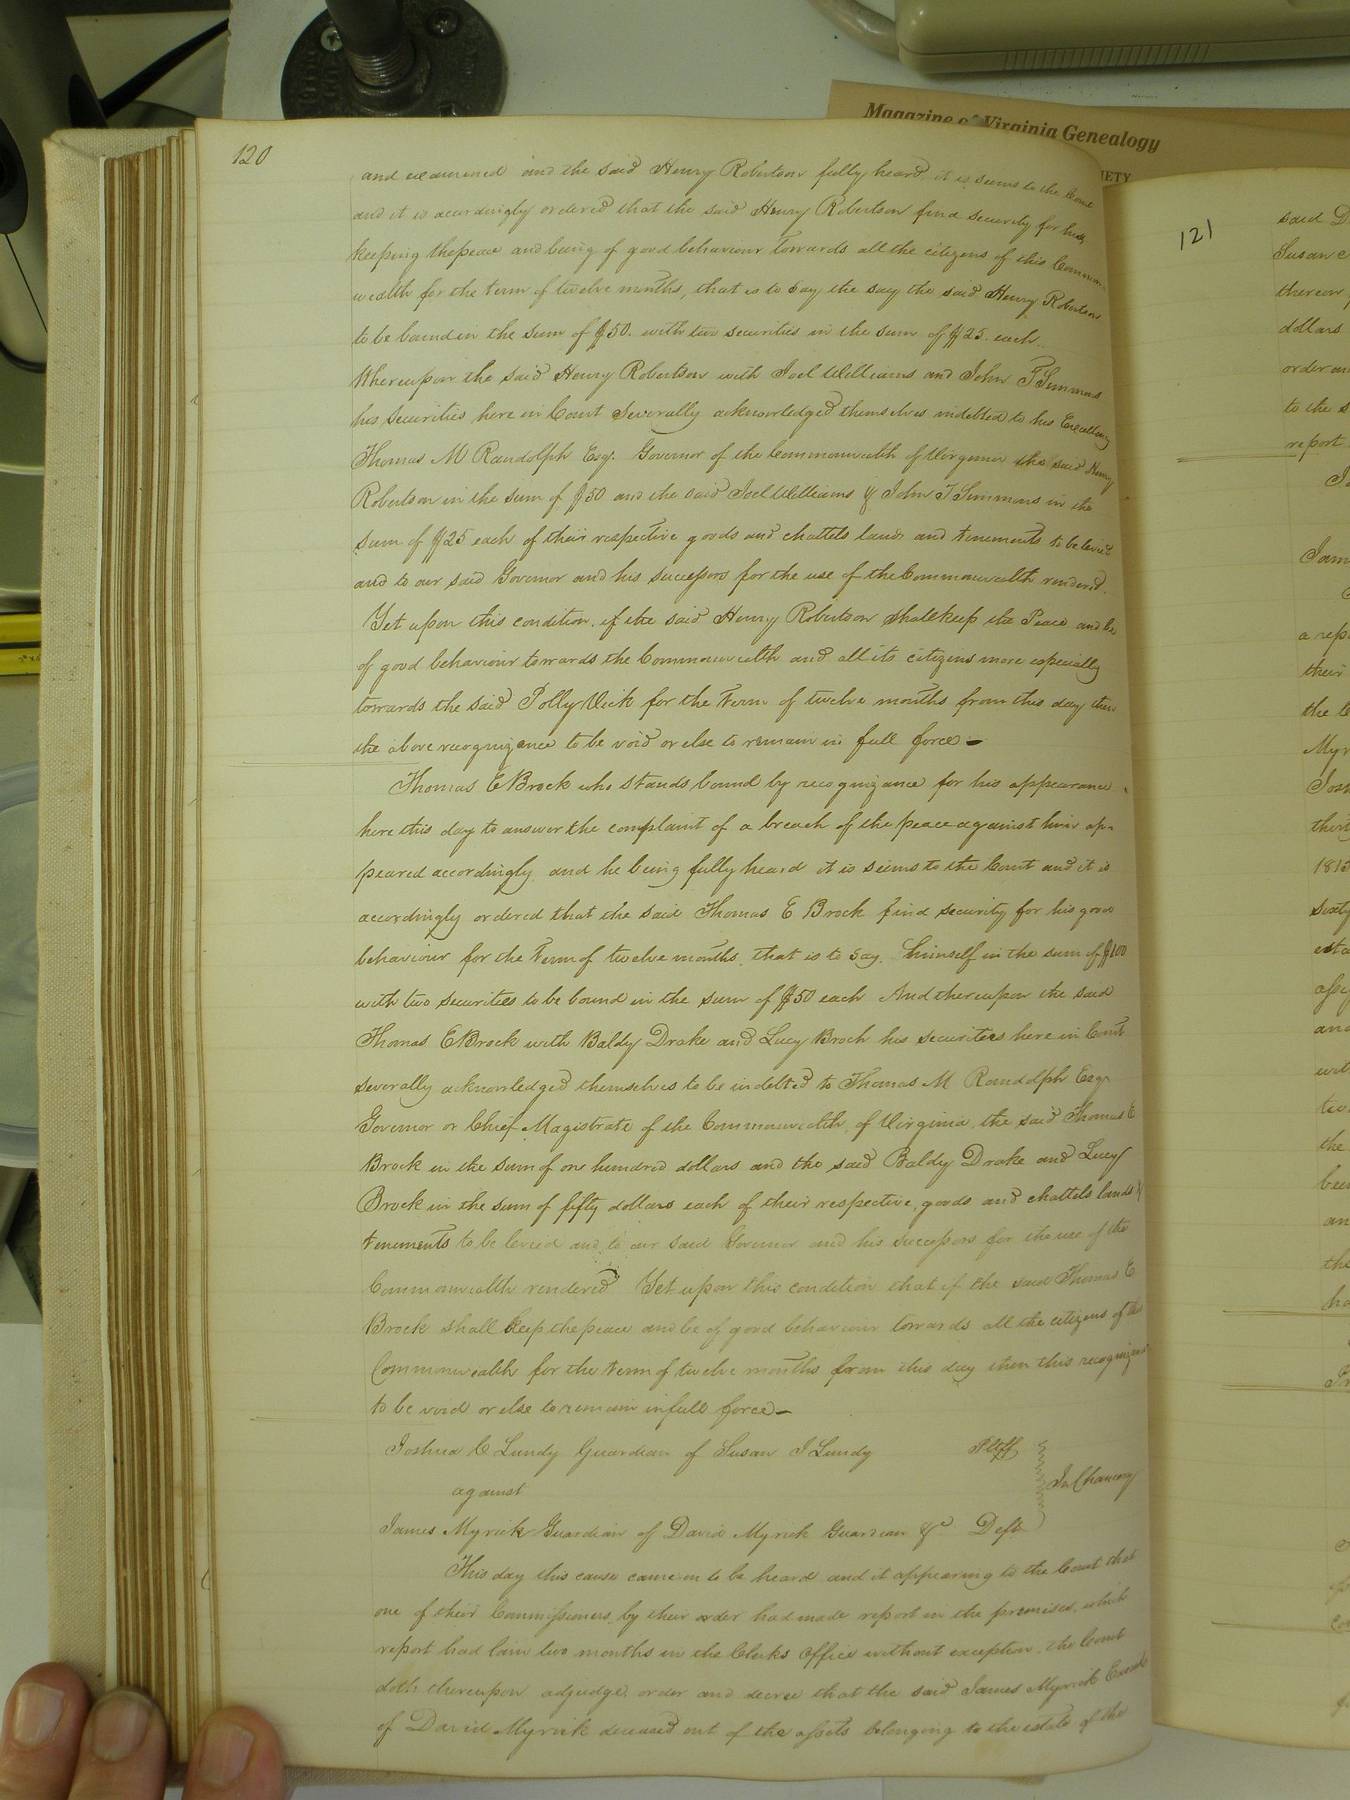 Magazine of Virginia Genealogy
IETY
120
and examined and the said Henry Robertson fully heard it is seems to the Court
and it is accordingly ordered that the said Henry Robertson find security for his
keeping the peace and being of good behaviour towards all the citizens of this Common
wealth for the term of twelve months, that is to say the say the said Henry Robertson
to be bound in the sum of $50. with two securities in the sum of $25. each.
Whereupon the said Henry Robertson with Joel Williams and John T Simmons
his securities here in Court severally acknowledged themselves indebted to his Excellency
Thomas M Randolph Esqr. Governor of the Commonwealth of Virginia the said Henry
Robertson in the sum of $50 and the said Joel Williams & John T Simmons in the
sum of $25 each of their respective goods and chattels lands and tenements to be levied
and to our said Governor and his successors for the use of the Commonwealth rendered.
Yet upon this condition, if the said Henry Robertson shall keep the Peace and be
of good behaviour towards the Commonwealth and all its citizens more especially
towards the said Polly Vick for the term of twelve months from this day then
the above recognizance to be void or else to remain in full force –
Thomas E Brock who stands bound by recognizance for his appearance
here this day to answer the complaint of a breach of the peace against him ap-
peared accordingly and he being fully heard it is seems to the Court and it is
accordingly ordered that the said Thomas E Brock find security for his good
behaviour for the term of twelve months, that is to say, himself in the sum of $100
with two securities to be bound in the sum of $50 each And thereupon the said
Thomas E Brock with Baldy Drake and Lucy Brock his securities here in Court
severally acknowledged themselves to be indebted to Thomas M Randolph Esqr
Governor or Chief Magistrate of the Commonwealth of Virginia, the said Thomas E
Brock in the sum of one hundred dollars and the said Baldy Drake and Lucy
Brock in the sum of fifty dollars each of their respective goods and chattels lands &
tenements to be levied and to our said Governor and his successors for the use of the
Commonwealth rendered Yet upon this condition that if the said Thomas E
Brock shall keep the peace and be of good behaviour towards all the citizens of this
Commonwealth for the term of twelve months from this day then this recognizance
to be void or else to remain in full force –
Joshua C Lundy Guardian of Susan J Lundy Pltff
against In Chancery
James Myrick Guardian of David Myrick Guardian &c Deft
This day this cause came on to be heard and it appearing to the Court that
one of their Commissioners by their order had made report in the premises, which
report had lain two months in the Clerks Office without exception, the Court
doth thereupon adjudge order and decree that the said James Myrick
of David Myrick deceased out of the assets belonging to the estate of the
121
said
Susan
thereon
dollars
order
to the
report
their
the
1815
sixty
and
the
the